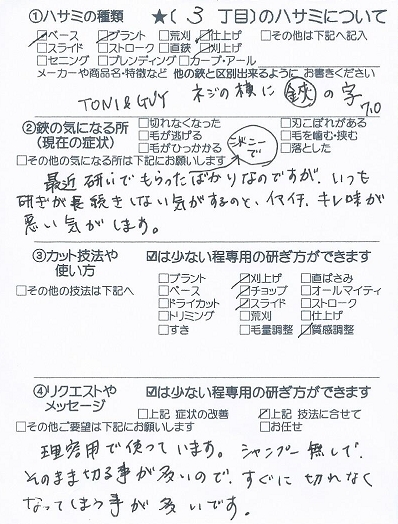 ①ハサミの種類 ★(3 丁目)のハサミについて
☑ベース ☑ブラント □荒刈 ☑仕上げ □その他は下記へ記入
□スライド □ストローク □直鋏 ☑刈上げ
□セニング □ブレンディング □カーブ・アール
メーカーや商品名・特徴など 他の鋏と区別出来るように お書きください
TONI&GUY ネジの横に 鋏 の字
7.0
②鋏の気になる所
(現在の症状)
□切れなくなった □刃こぼれがある
□毛が逃げる □毛を噛む・挟む
□毛がひっかかる □落とした
シドニーで
□その他の気になる所は下記にお願いします
最近 研いでもらったばかりなのですが、いつも
研ぎが長続きしない気がするのと、イマイチ、キレ味が
悪い気がします。
③カット技法や
使い方
☑は少ない程専用の研ぎ方ができます
□ブラント ☑刈上げ □直ばさみ
□その他の技法は下記へ □ベース ☑チョップ □オールマイティ
□ドライカット ☑スライド □ストローク
□トリミング □荒刈 □仕上げ
□すき □毛量調整 ☑質感調整
④リクエストや
メッセージ
☑は少ない程専用の研ぎ方ができます
□上記 症状の改善 ☑上記 技法に合せて
□その他ご要望は下記にお願いします □お任せ
理容用で使っています。シャンプー無しで、
そのまま切る事が多いので、すぐに切れなく
なってしまう事が多いです。